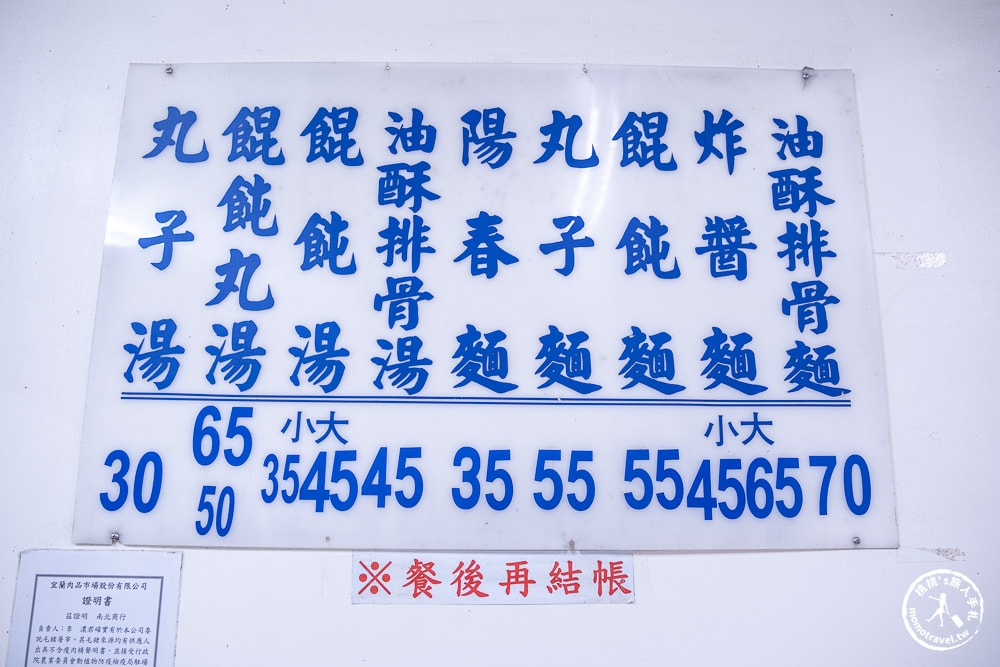 油酥排骨麵
炸醬麵
餛飩麵
丸子麵
陽春麵
油酥排骨湯
餛飩湯
餛飩丸湯
丸子湯
65
小大
小大
30
50
35
45
45
35
55
55
45
65
70
※餐後再結帳
宜蘭肉品市場股份有限公司
證明書
茲證明 南北商行
託毛豬屠宰，其毛豬來源均有供應人
出具不含瘦肉精聲明書，並接受行政
院農業委員會動植物防疫檢疫局駐場
桃桃's旅人手札
momotravel.tw